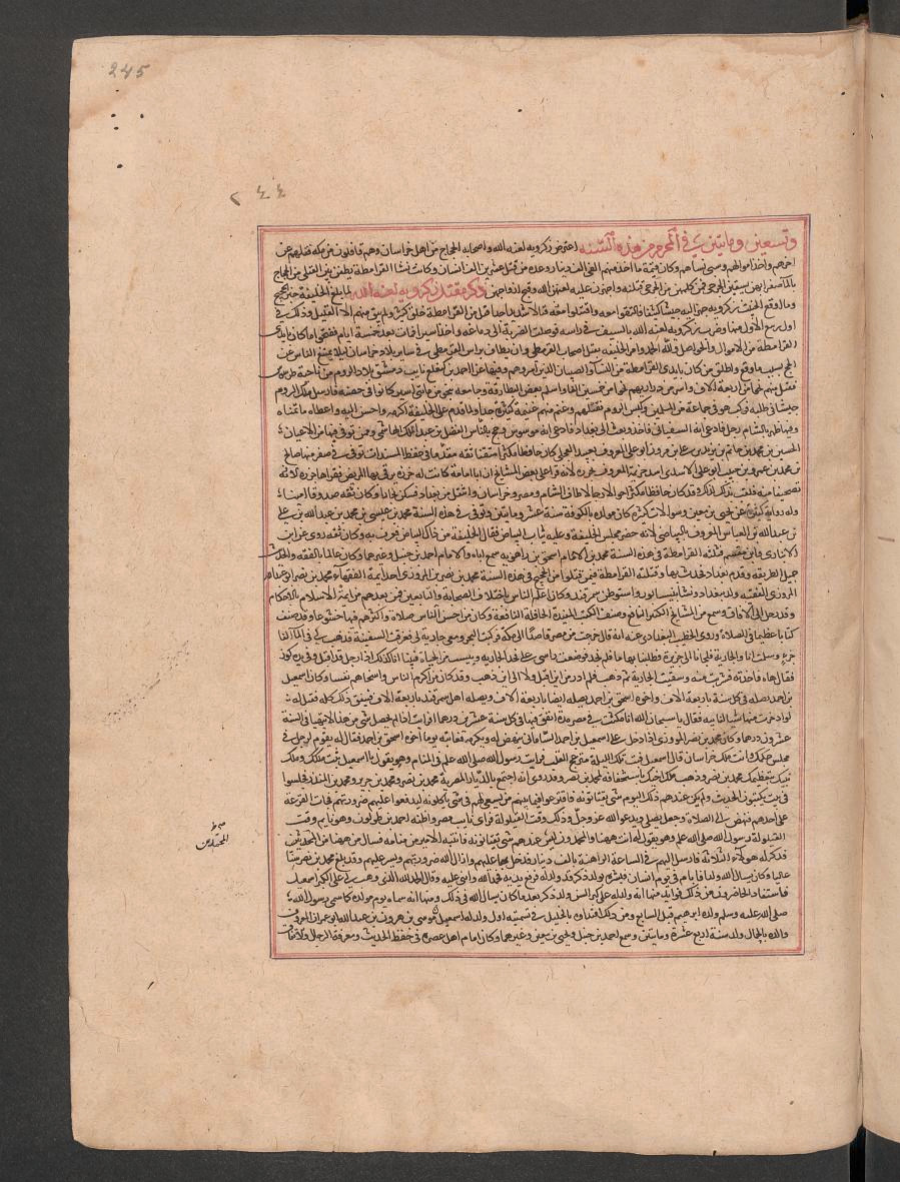 245
٢٤٤
وتسعين ومايتين في المحرم من هذه السنة اعترض زكرويه لعنه الله واصحابه الحجاج من اهل خراسان وهم قافلون من مكه فقتلهم عن
اخرهم واخذ اموالهم وسبى نساهم وكان قيمة ما اخذه منهم الفى الف دينار وعدة من قتل عشرين الف انسان وكانت نسا القرامطة يطفن بين القتلى من الحجاج
ذكر مقتل زكرويه لعنه الله لما بلغ الخليفة خبر الحجيج
وما وقع الخبيث زكرويه جهز اليه جيشا كثيفا فالتقوا معه واقتتلوا معه قتالا شديدا جدا قتل من القرامطة خلق كثير ولم يبق منهم الا القليل وذلك في
اول ربيع الاول منها وضرب زكرويه لعنه الله بالسيف في راسه فوصلت الضربة الى دماغه واخذ اسيرا فمات بعد خمسة ايام
القرامطة من الاموال والحواصل ولله الحمد وامر الخليفه بقتل اصحاب القرمطى وان يطاف براس القرمطى في ساير بلاد خراسان ليلا يمتنع الناس عن
الحج بسبب ما وقع واطلق من كان بايدى القرامطة من النسا والصبيان الذين اسروهم وفيها غزا احمد بن كيغلغ نايب دمشق بلاد الروم من ناحية طرسوس
فقتل منهم نحوا من اربعة الاف واسر من ذراريهم نحوا من خمسين الفا واسلم بعض البطارقة وجا معه بنحو من مايتى اسير كانوا في حصنه فارسل ملك الروم
جيشا في طلبه فركب هو في جماعة من المسلمين وكبس الروم فقتلهم وغنم منهم غنيمة كثيره جدا ولما قدم على الخليفة اكرمه واحسن اليه واعطاه ما تمناه
وفيها ظهر بالشام رجل فادعى انه السفيانى فاخذ وبعث الى بغداد فادعى انه موسوس وحج بالناس الفضل بن عبد الملك الهاشمى وممن توفى فيها من الاعيان
الحسين بن محمد بن حاتم بن يزيد بن على بن مروان ابو على المعروف بعبيد العجلى كان حافظا مكثرا متقنا ثقه مقدما في حفظ المسندات توفى في صفر منها صالح
بن محمد بن عمرو بن حبيب ابو على الاسدى اسد خزيمة المعروف بجزره لانه قرا على بعض المشايخ ان ابا امامة كانت له خرزه يرقى بها المريض فقراها جزره
تصحيفا منه فلقب بذلك لذلك وقد كان حافظا مكثرا جوالا رحالا طاف الشام ومصر وخراسان وانتقل من بغداد فسكن بخارا وكان ثقه صدوقا امينا
وله رواية كثيره عن يحيى بن معين وسوالات كثيره كان مولده بالكوفة سنة عشر ومايتين وتوفى في هذه السنة محمد بن عيسى بن محمد بن عبد الله بن على
بن عبد الله بن العباس المعروف بالبياضى لانه حضر مجلس الخليفة وعليه ثياب البياض فقال الخليفة من ذاك البياضى فعرف به وكان ثقه روى عن ابن
الانبارى وابن مقسم قتلته القرامطة في هذه السنة محمد بن الامام اسحق بن راهويه سمع اباه والامام احمد بن حنبل وغيرهما وكان عالما بالفقه والحديث
جميل الطريقه وقدم بغداد فحدث بها وقتلته القرامطة فيمن قتلوا من الحجيج في هذه السنة محمد بن نصر المروزى احد ايمة الفقهاء محمد بن نصر ابو عبد الله
المروزى الفقيه ولد ببغداد ونشا بنيسابور واستوطن سمرقند وكان اعلم الناس باختلاف الصحابة والتابعين فمن بعدهم من ايمة الاسلام بالاحكام
وقد رحل الى الافاق وسمع من المشايخ الكثير النافع وصنف الكتب المفيدة الحافلة النافعة وكان من احسن الناس صلاة واكثرهم فيها خشوعا وقد صنف
كتابا عظيما في الصلاة وروى الخطيب البغدادى عنه انه قال خرجت من مصر قاصدا الى مكة فركبت البحر ومعى جارية لى فغرقت السفينة فذهب لى في الما الفا
جزء وسلمت انا والجارية فلجانا الى جزيرة فطلبنا بها ما فلم نجد فوضعت راسى على فخذ الجاريه ويست من الحياة فبينا انا كذلك اذا رجل قد اقبل وفي يده كوز
فقال هاه فاخذته فشربت منه وسقيت الجارية ثم ذهب فلم ادر من اين اقبل ولا الى اين ذهب وقد كان من اكرم الناس واسخاهم نفسا وكان اسمعيل
بن احمد يصله في كل سنة باربعة الاف واخوه اسحق بن احمد يصله ايضا باربعة الاف ويصله اهل سمرقند باربعة الاف فينفق ذلك كله فقيل له
لو ادخرت منها شيا لنايبه فقال يا سبحان الله انا مكثت في مصر مدة انفق فيها في كل سنة عشرين درهما افرايت اذا لم يحصل شى من هذا لا يتهيا في السنة
عشرون درهما وكان محمد بن نصر المروزى اذا دخل على اسمعيل بن احمد السامانى ينهض له ويكرمه فعاتبه يوما اخوه اسحق بن احمد فقال له يقوم لرجل في
مجلس حكمك وانت ملك خراسان قال اسمعيل فبت تلك الليلة متوجع القلب فرايت رسول الله صلى الله عليه وسلم في المنام وهو يقول يا اسمعيل ثبت ملكك وملك
بنيك بتعظيمك محمد بن نصر وذهب ملك اخيك باستخفافه بمحمد بن نصر وقد روى انه اجتمع بالديار المصرية محمد بن نصر ومحمد بن جرير ومحمد بن المنذر فجلسوا
في بيت يكتبون الحديث ولم يكن عندهم ذلك اليوم شى يقتاتونه فاقترعوا فيما بينهم من يسعى لهم في شى ياكلونه ليدفعوا عليهم ضرورتهم فجات القرعة
على احدهم فنهض الى الصلاة وجعل يصلى ويدعو الله عز وجل وذلك وقت القيلولة فراى نايب مصر واظنه احمد بن طولون وهو نايم وقت
القيلولة رسول الله صلى الله عليه وهو يقول له انت ههنا والمحمدون ليس عندهم شى يقتاتونه فانتبه الامير من منامه فسال من ههنا من المحدثين
فذكر له هولاء الثلاثة فارسل اليهم في الساعة الراهنة بالف دينار فدخل بها عليهم وازال الله ضرورتهم ويسر عليهم وقد بلغ محمد بن نصر سنا
عاليا وكان يسال الله ولدا فاتاه يوم انسان فبشره بولد ذكر قد ولد له فرفع يديه فحمد الله واثنى عليه وقال الحمد لله الذى وهب لى على الكبر اسمعيل
فاستفاد الحاضرون من ذلك فوايد منها انه ولد له على كبر السن ولد ذكر بعد ما كان يسال الله في ذلك ومنها انه سماه يوم مولده كما سمى رسول الله
صلى الله عليه وسلم ولده ابرهيم قبل السابع ومن ذلك اقتداوه بالخليل في تسميته اول ولد له اسمعيل موسى بن هرون بن عبد الله ابو عمران المعروف
والده بالحمال ولد سنة اربع عشرة ومايتين وسمع احمد بن حنبل ويحيى بن معين وغيرهما وكان امام اهل عصره في حفظ الحديث ومعرفة الرجال